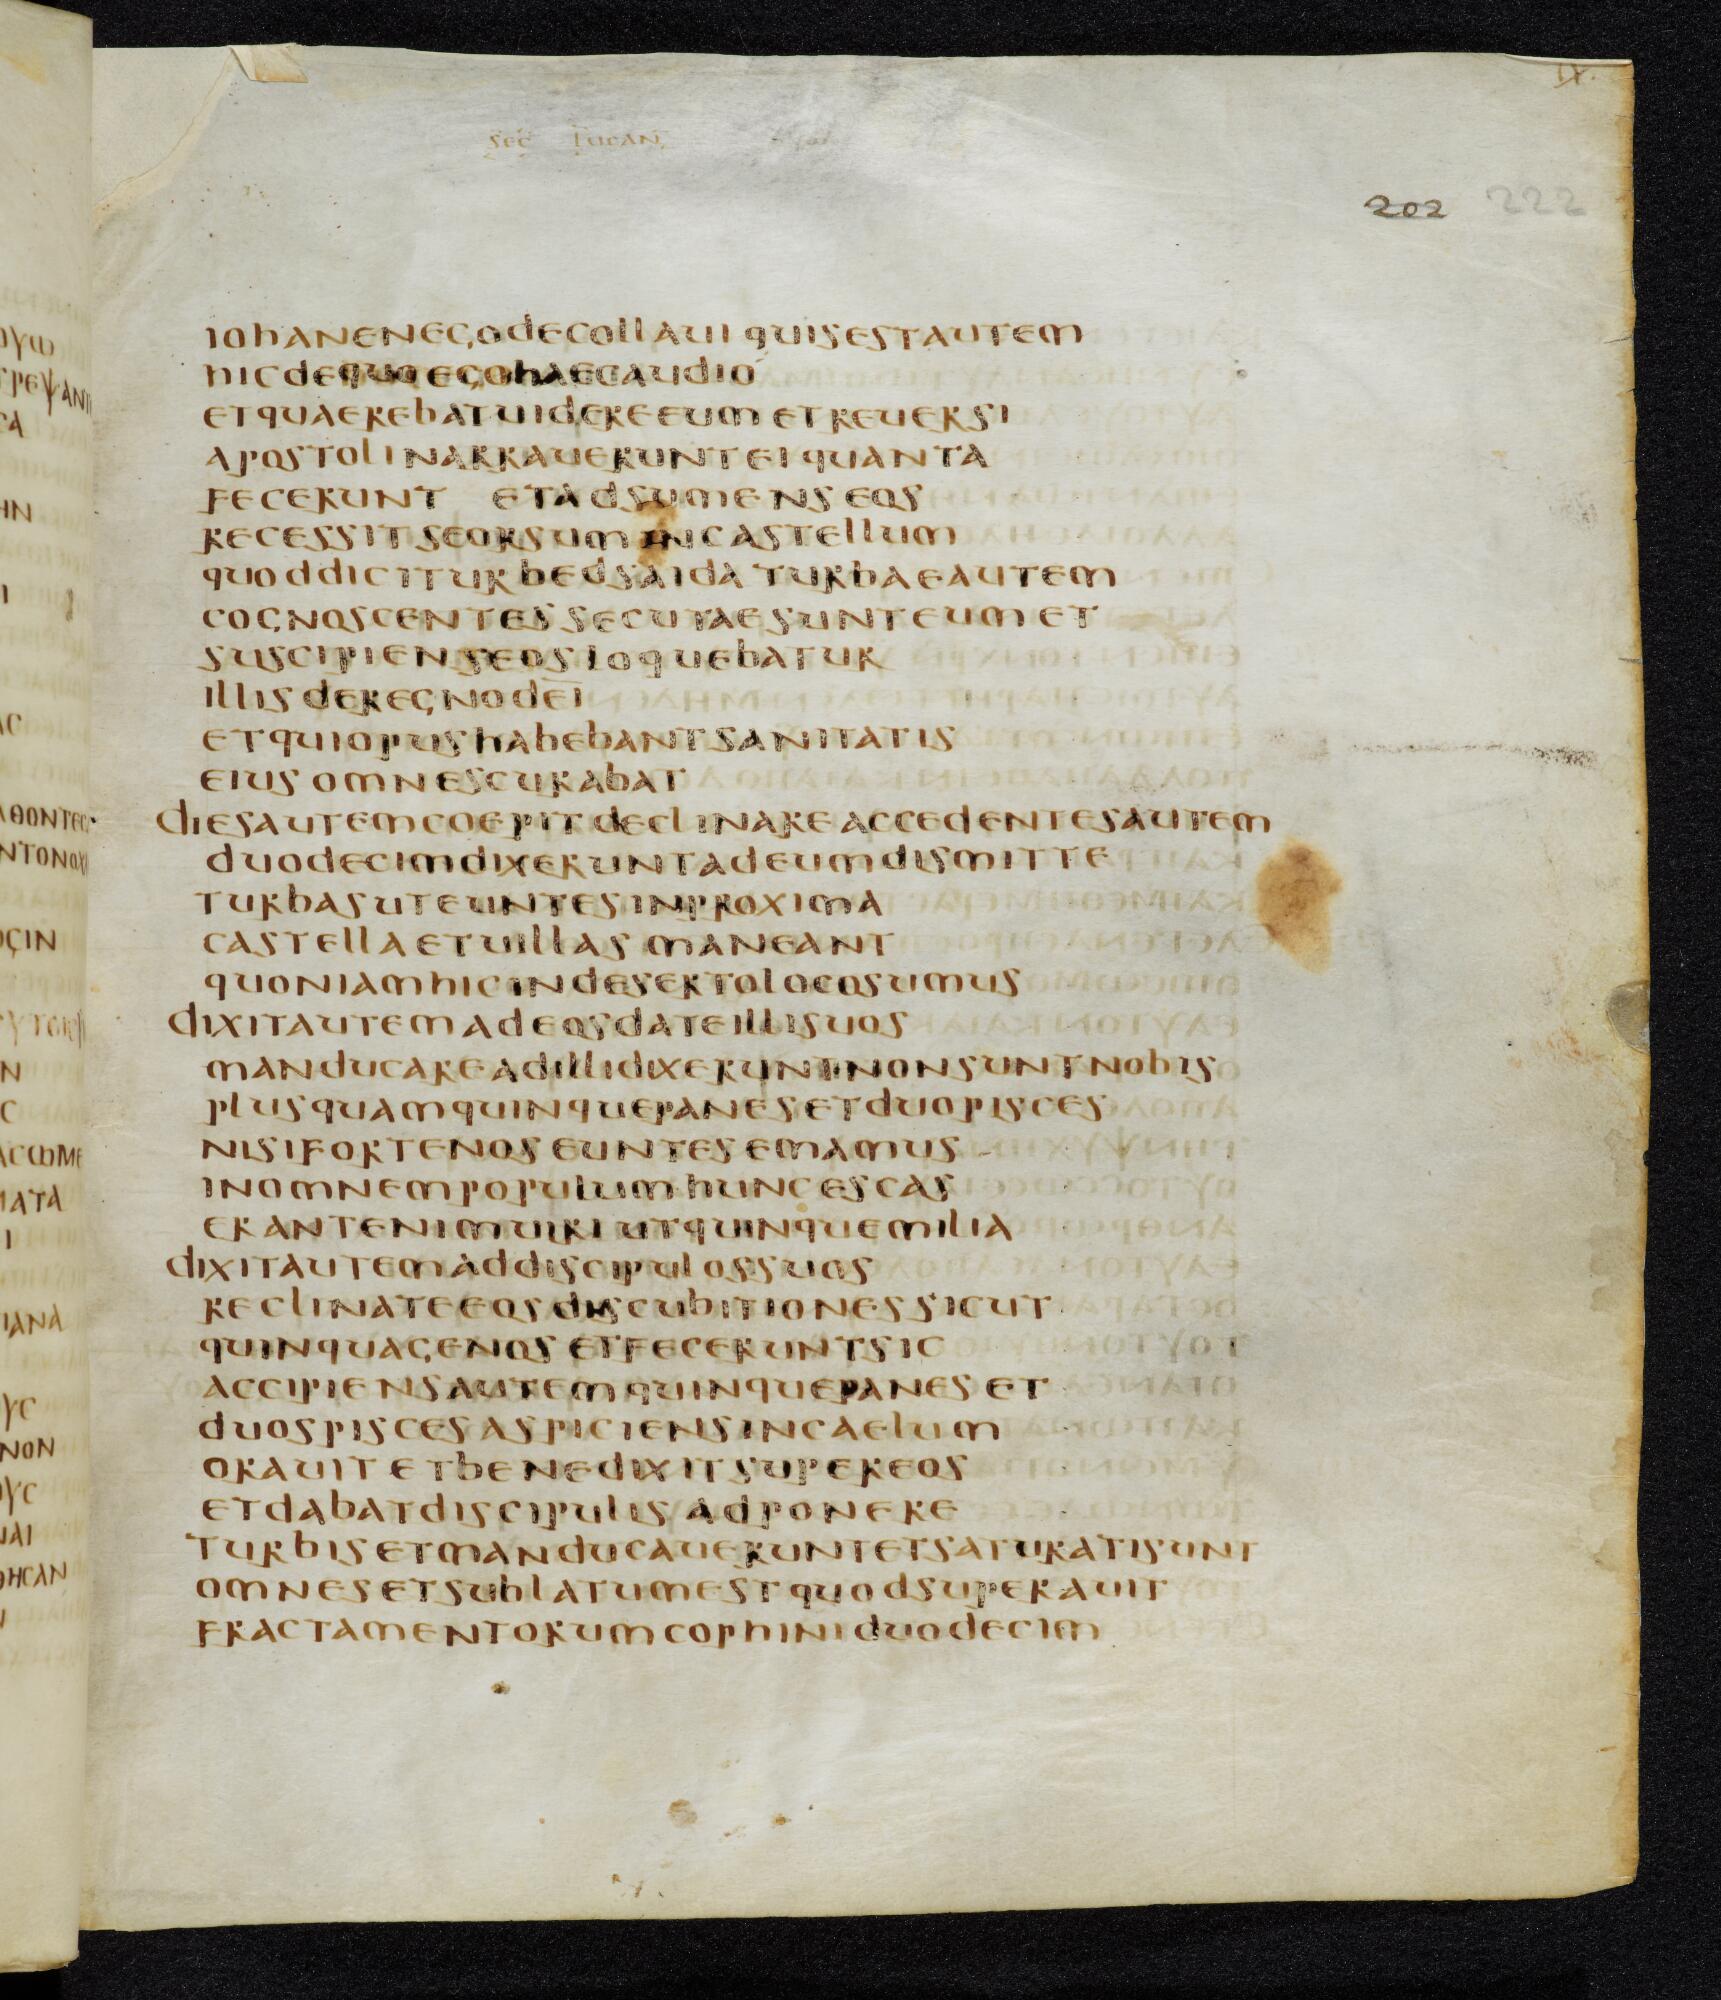 sec lucan
202 222
iohanenegodecollaui quisestautem
hicdequoegohaecaudio
etquaerebatuidereeum etreuersi
apostolinarrauerunteiquanta
fecerunt etadsumens eos
recessitseorsum incastellum
quoddicitur bedsaida turbaeautem
cognoscentessecutaesunteumet
suscipienseosloquebatur
illisderegnodei̅
etquiopushabebantsanitatis
eiusomnescurabat
diesautemcoepitdeclinareaccedentesautem
duodecimdixeruntadeumdismitte
turbasuteuntesinproxima
castellaetuillas maneant
quoniamhicindesertolocosumus
dixitautemadeosdateillisuos
manducareadillidixeruntnonsuntnobis
plusquamquinquepanesetduopisces
nisifortenoseuntesemamus
inomnempopulumhuncescas
erantenimuiri utquinquemilia
dixitautemaddiscipulossuos
reclinateeosdiscubitionessicut
quinquagenos etfeceruntsic
accipiensautemquinquepaneset
duospiscesaspiciensincaelum
orauitetbenedixitsupereos
etdabatdiscipulisadponere
turbisetmanducaueruntetsaturatisunt
omnesetsublatumestquodsuperauit
fractamentorumcophiniduodecim